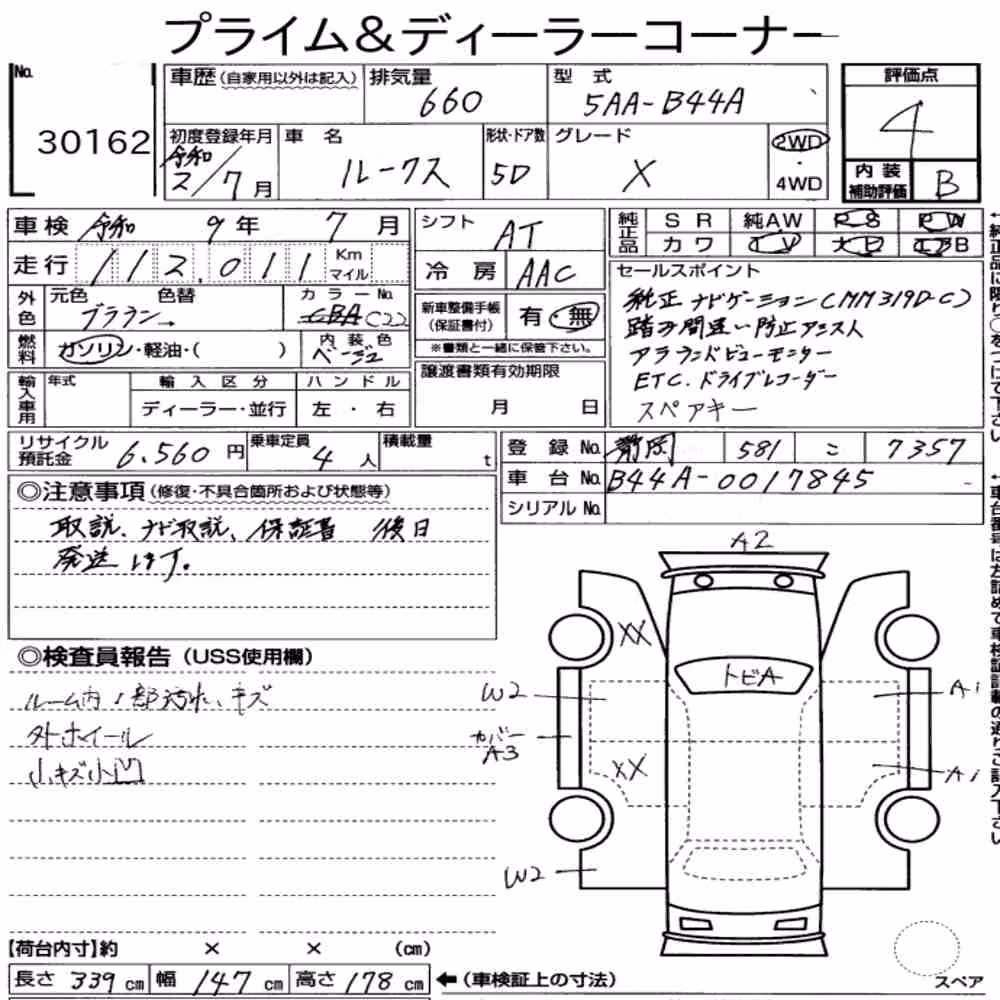 プライム&ディーラーコーナー
No.
30162
車歴(自家用以外は記入)
排気量
660
型 式
5AA-B44A
評価点
4
初度登録年月
令和
2/7月
車 名
ルークス
形状・ドア数
5D
グレード
X
2WD
・
4WD
内 装
補助評価
B
車検 令和 9年 7月
シフト
AT
純正品
S R 純AW P S P W
カ ワ T V ナ ビ エアB
走行 112,011 Km マイル
冷 房 AAC
セールスポイント
純正ナビゲーション(MM319D-C)
踏み間違い防止アシスト
アラウンドビューモニター
ETC.ドライブレコーダー
スペアキー
外色
元色 色替
ブラウン
カラーNo.
GBA C22
新車整備手帳
(保証書付)
有・無
※書類と一緒に保管下さい。
燃料
ガソリン・軽油・( )
内 装 色
ベージュ
輸入車用
年式
輸 入 区 分
ハ ン ド ル
ディーラー・並行
左 ・ 右
譲渡書類有効期限
月 日
リサイクル
預託金
6.560円
乗車定員
4人
積載量
t
登 録 No.
静岡 581 こ 7357
車 台 No.
B44A-0017845
シリアルNo.
◎注意事項(修復・不具合箇所および状態等)
取説、ナビ取説、保証書 後日
発送します。
◎検査員報告(USS使用欄)
ルーム内1部汚れ、キズ
外ホイール
小キズ小凹
A2
XX
トビA
W2
A1
カバー
A3
XX
A1
W2
スペア
【荷台内寸】約 × × (cm)
長さ 339cm 幅 147cm 高さ 178cm
←(車検証上の寸法)
←純正品に限り○をつけて下さい
←車台番号は左詰めで車検証記載の通りご記入下さい